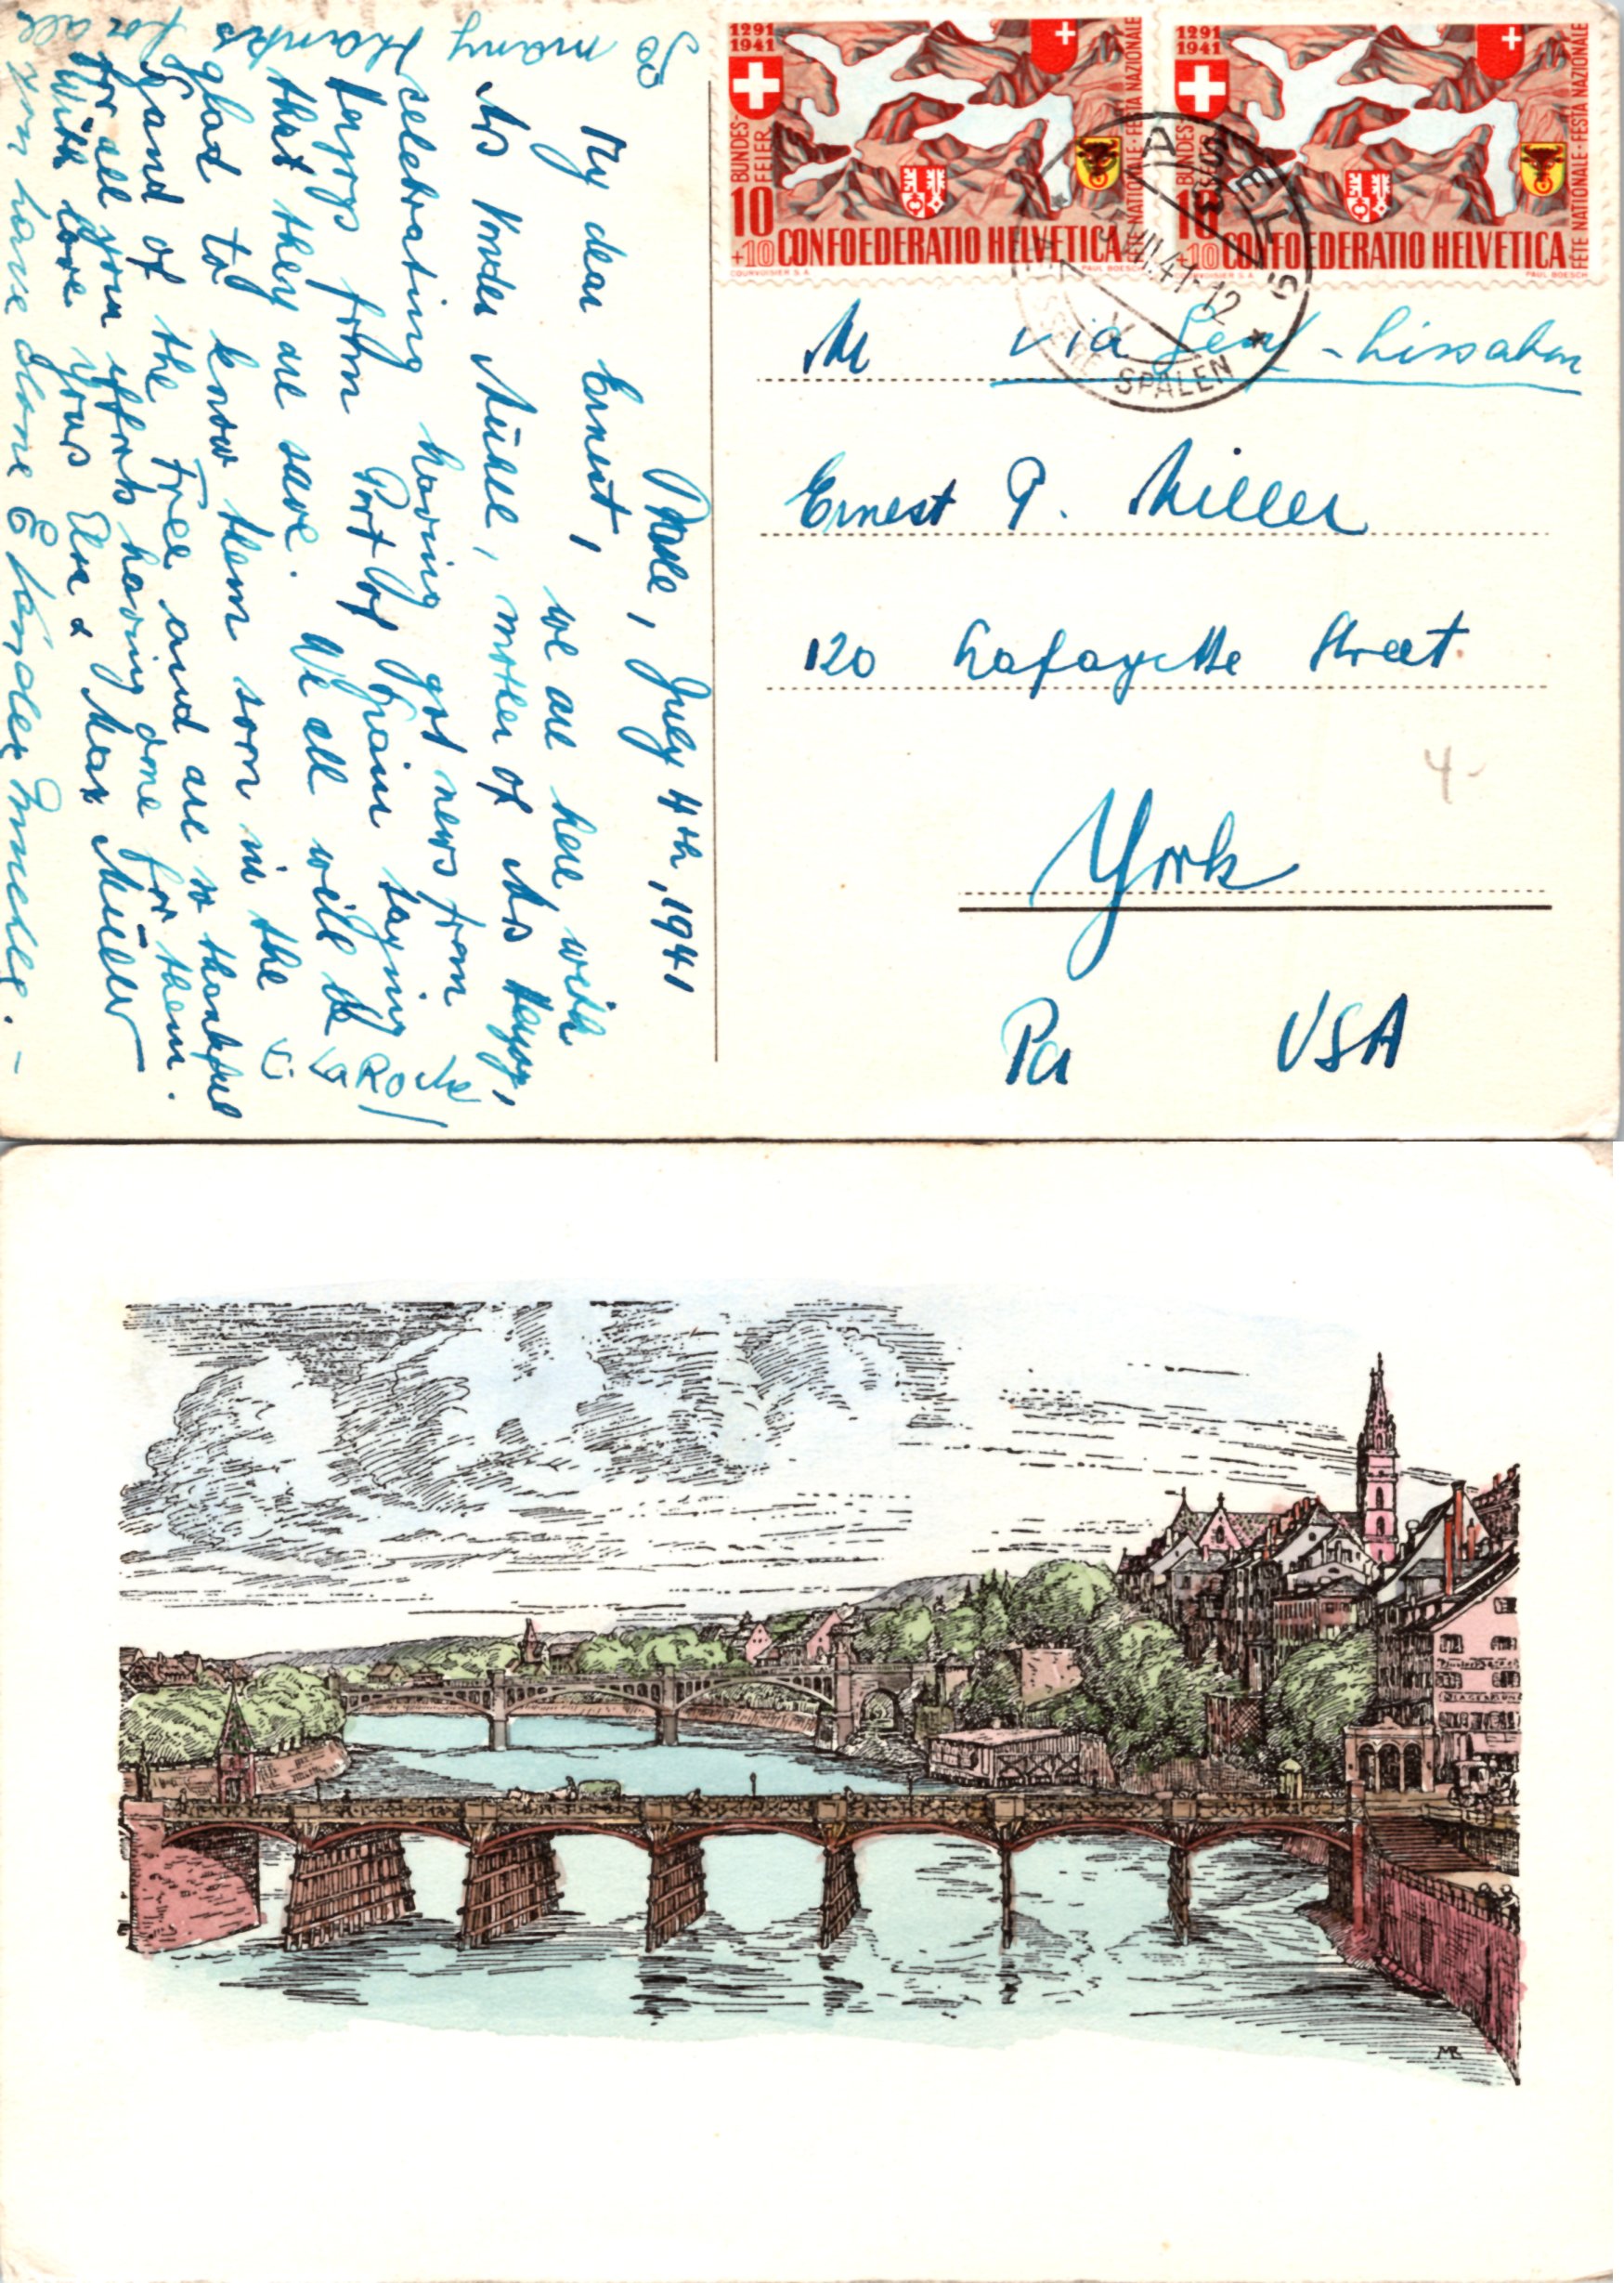 1291
1941
BUNDES-
FEIER
10
+10
CONFOEDERATIO HELVETICA
FÊTE NATIONALE · FESTA NAZIONALE
COURVOISIER S.A.
PAUL BOESCH
1291
1941
BUNDES
FEIER
10
+10
CONFOEDERATIO HELVETICA
FÊTE NATIONALE · FESTA NAZIONALE
COURVOISIER S.A.
PAUL BOESCH
BASEL
VII.41-12
SPALEN
M via Genf - Lissabon
Ernest P. Miller
120 Lafayette Street
York
Pa USA
4-
July 4th, 1941
My dear Ernest,
we are here with
Mrs Mühll, mother of Mrs
celebrating having got news from
from Port of Spain saying
that they are save. We all will be
glad to know them soon in the
Land of the Free and are so thankful
for all your efforts having done for them.
With love yours Elsa & Max Müller
So many thanks for all
you have done E
MR